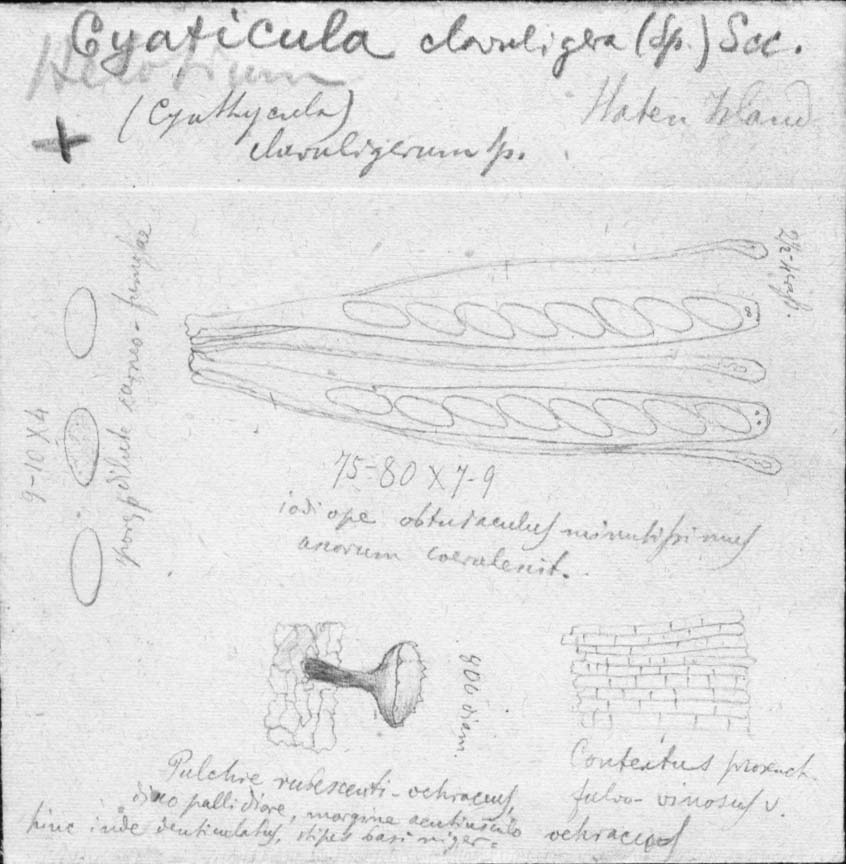 Cyaticula clavuligera (Sp.) Scc.
Helotium
(Cyathycula)
Staten Island
+
clavuligerum Sp.
2½-crass.
spor. dilute carneo-fumosae
9-10 X 4
75-80 X 7-9
iodi ope obturaculus minutissimus
ascorum coerulescit.
900 diam.
Pulchre rubescenti-ochraceus,
disco pallidiore, margine acutiusculo
hinc inde denticulatus, stipes basi niger
Contextus prosench.
fulvo-vinosus v.
ochraceus